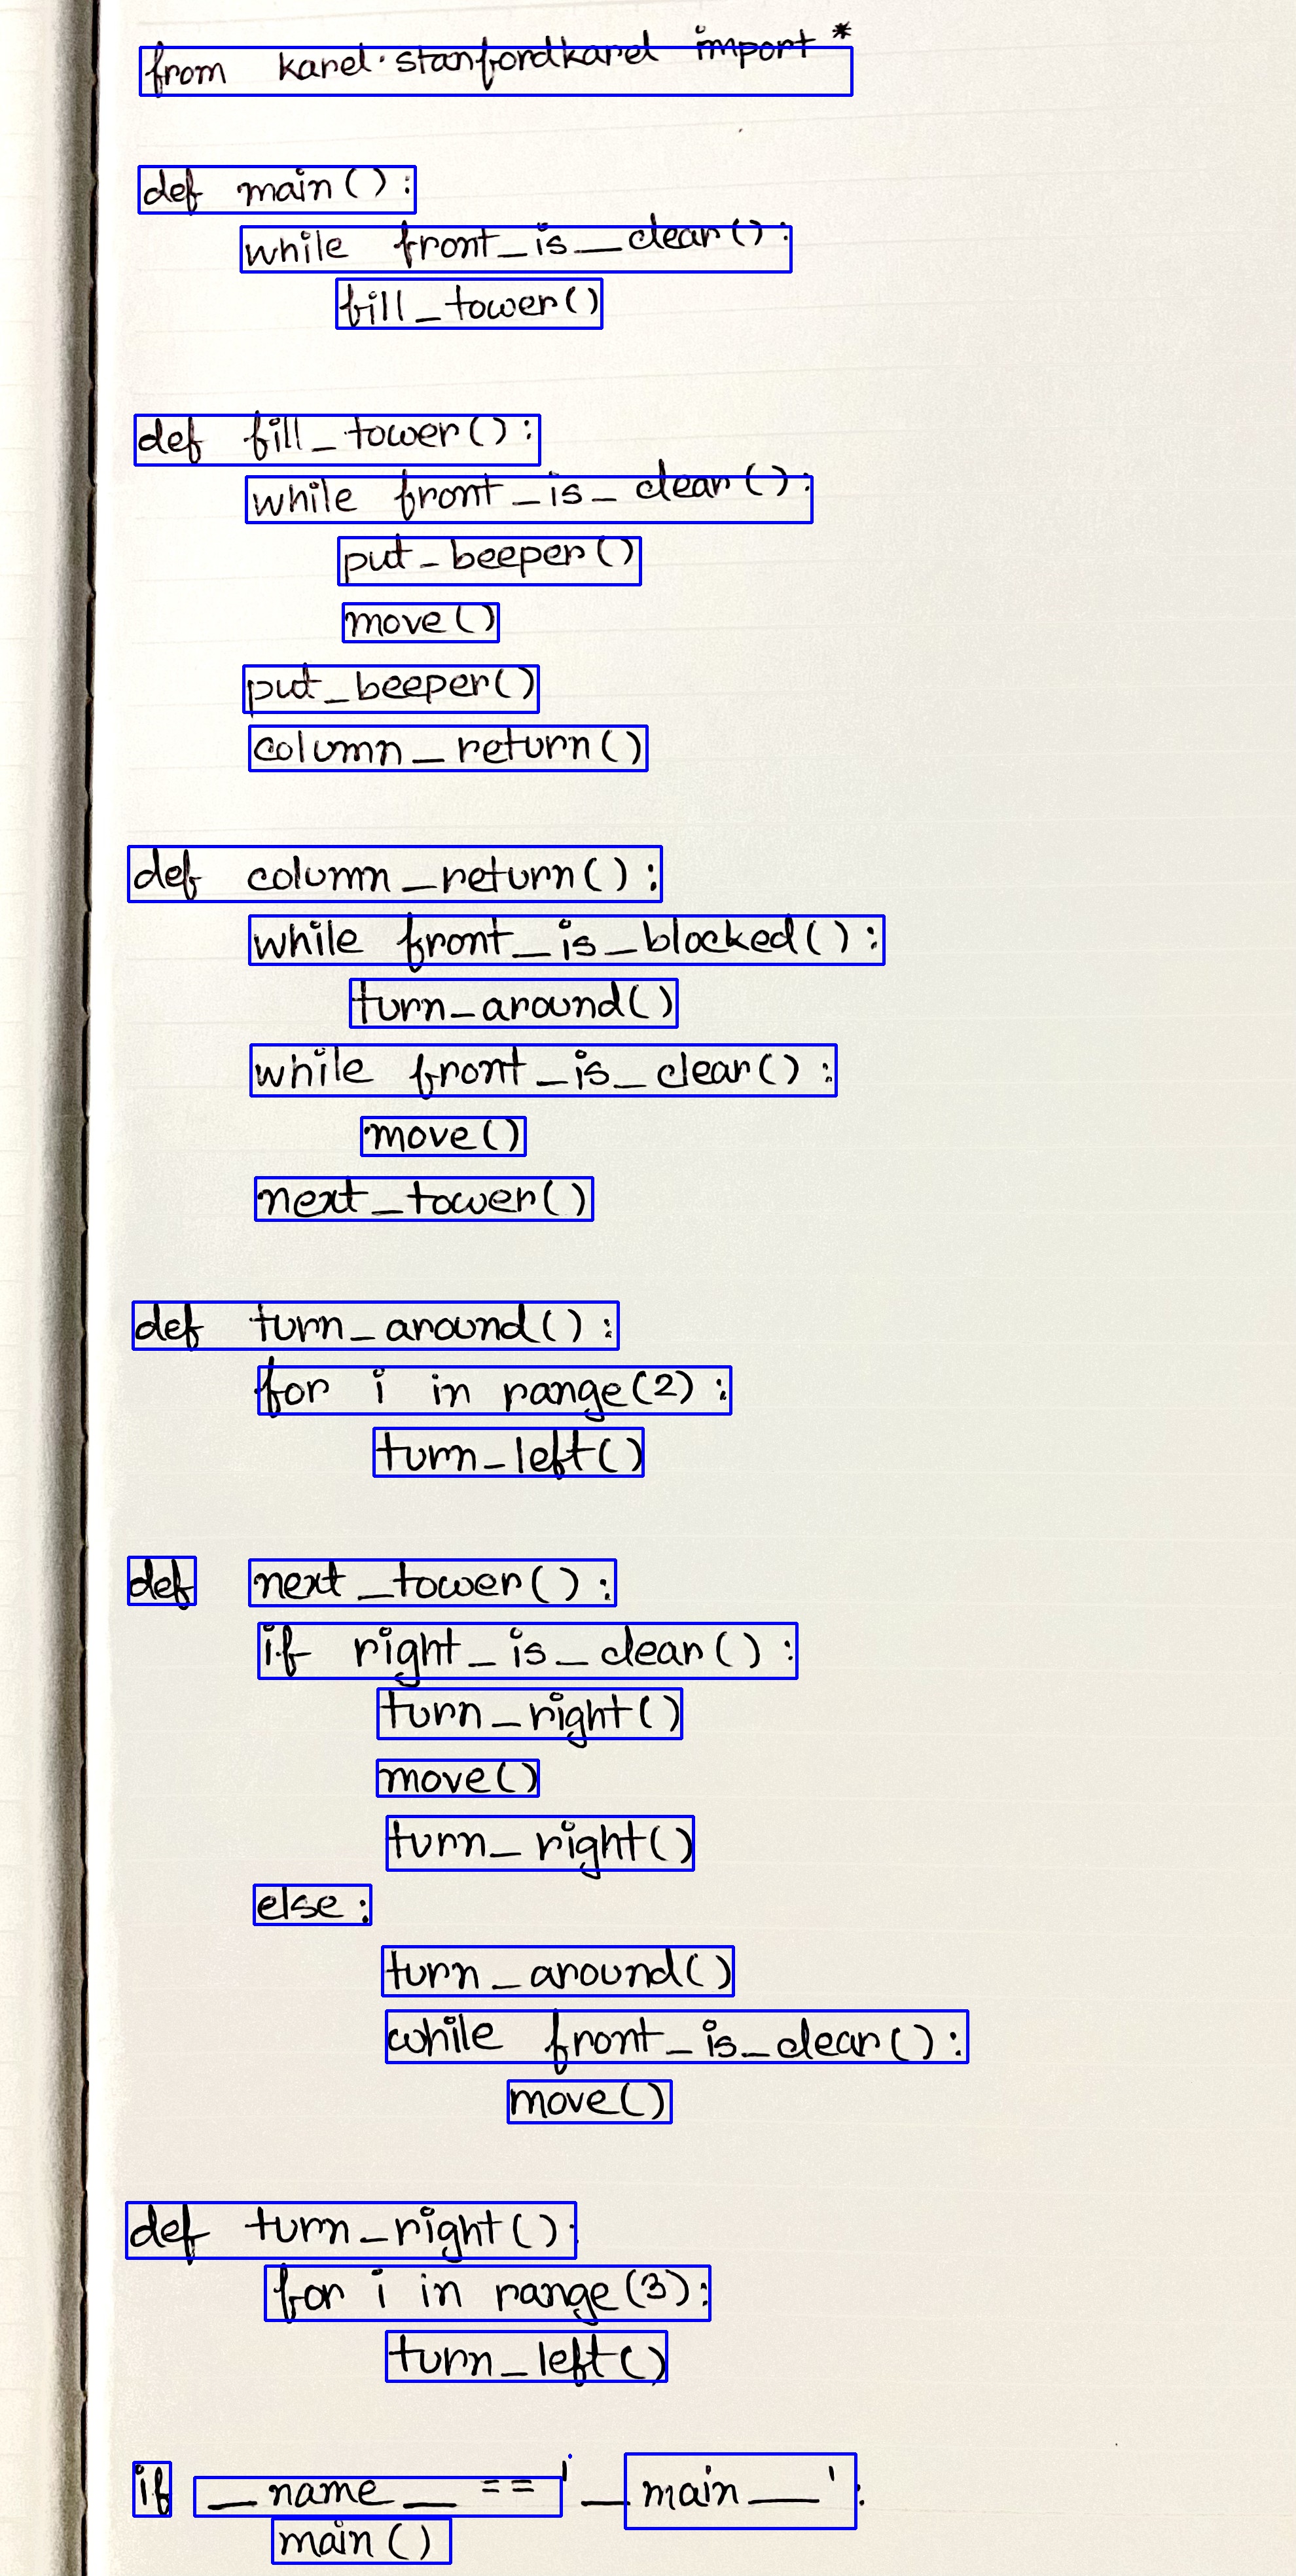 from karel.stanfordkarel import *
def main():
while front_is_clear():
fill_tower()
def fill_tower():
while front_is_clear():
put_beeper()
move()
put_beeper()
column_return()
def column_return():
while front_is_blocked():
turn_around()
while front_is_clear():
move()
next_tower()
def turn_around():
for i in range(2):
turn_left()
def next_tower():
if right_is_clear():
turn_right()
move()
turn_right()
else:
turn_around()
while front_is_clear():
move()
def turn_right():
for i in range(3):
turn_left()
if __name__ == '__main__':
main()